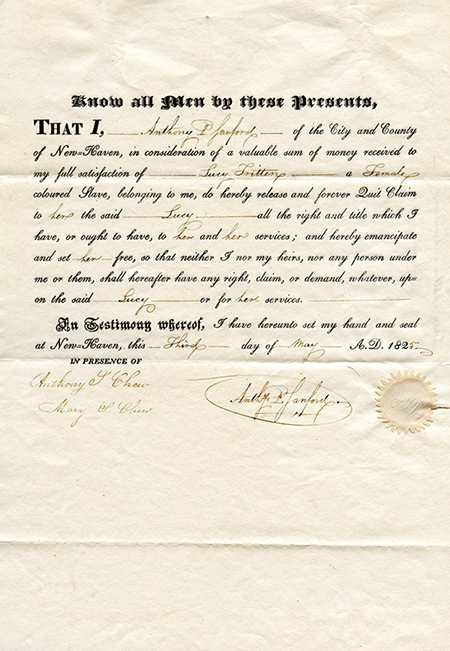 Know all Men by these Presents,
THAT I, Anthony P. Sanford of the City and County
of New=Haven, in consideration of a valuable sum of money received to
my full satisfaction of Lucy Tritten a Female
coloured Slave, belonging to me, do hereby release and forever Quit Claim
to her the said Lucy. all the right and title which I
have, or ought to have, to her and her services; and hereby emancipate
and set her free, so that neither I nor my heirs, nor any person under
me or them, shall hereafter have any right, claim, or demand, whatever, up-
on the said Lucy or for her services.
An Testimony whereof, I have hereunto set my hand and seal
at New=Haven, this Third day of May A.D. 1825
IN PRESENCE OF
Anthony S Chew
Mary S Chew
Anthy P. Sanford.